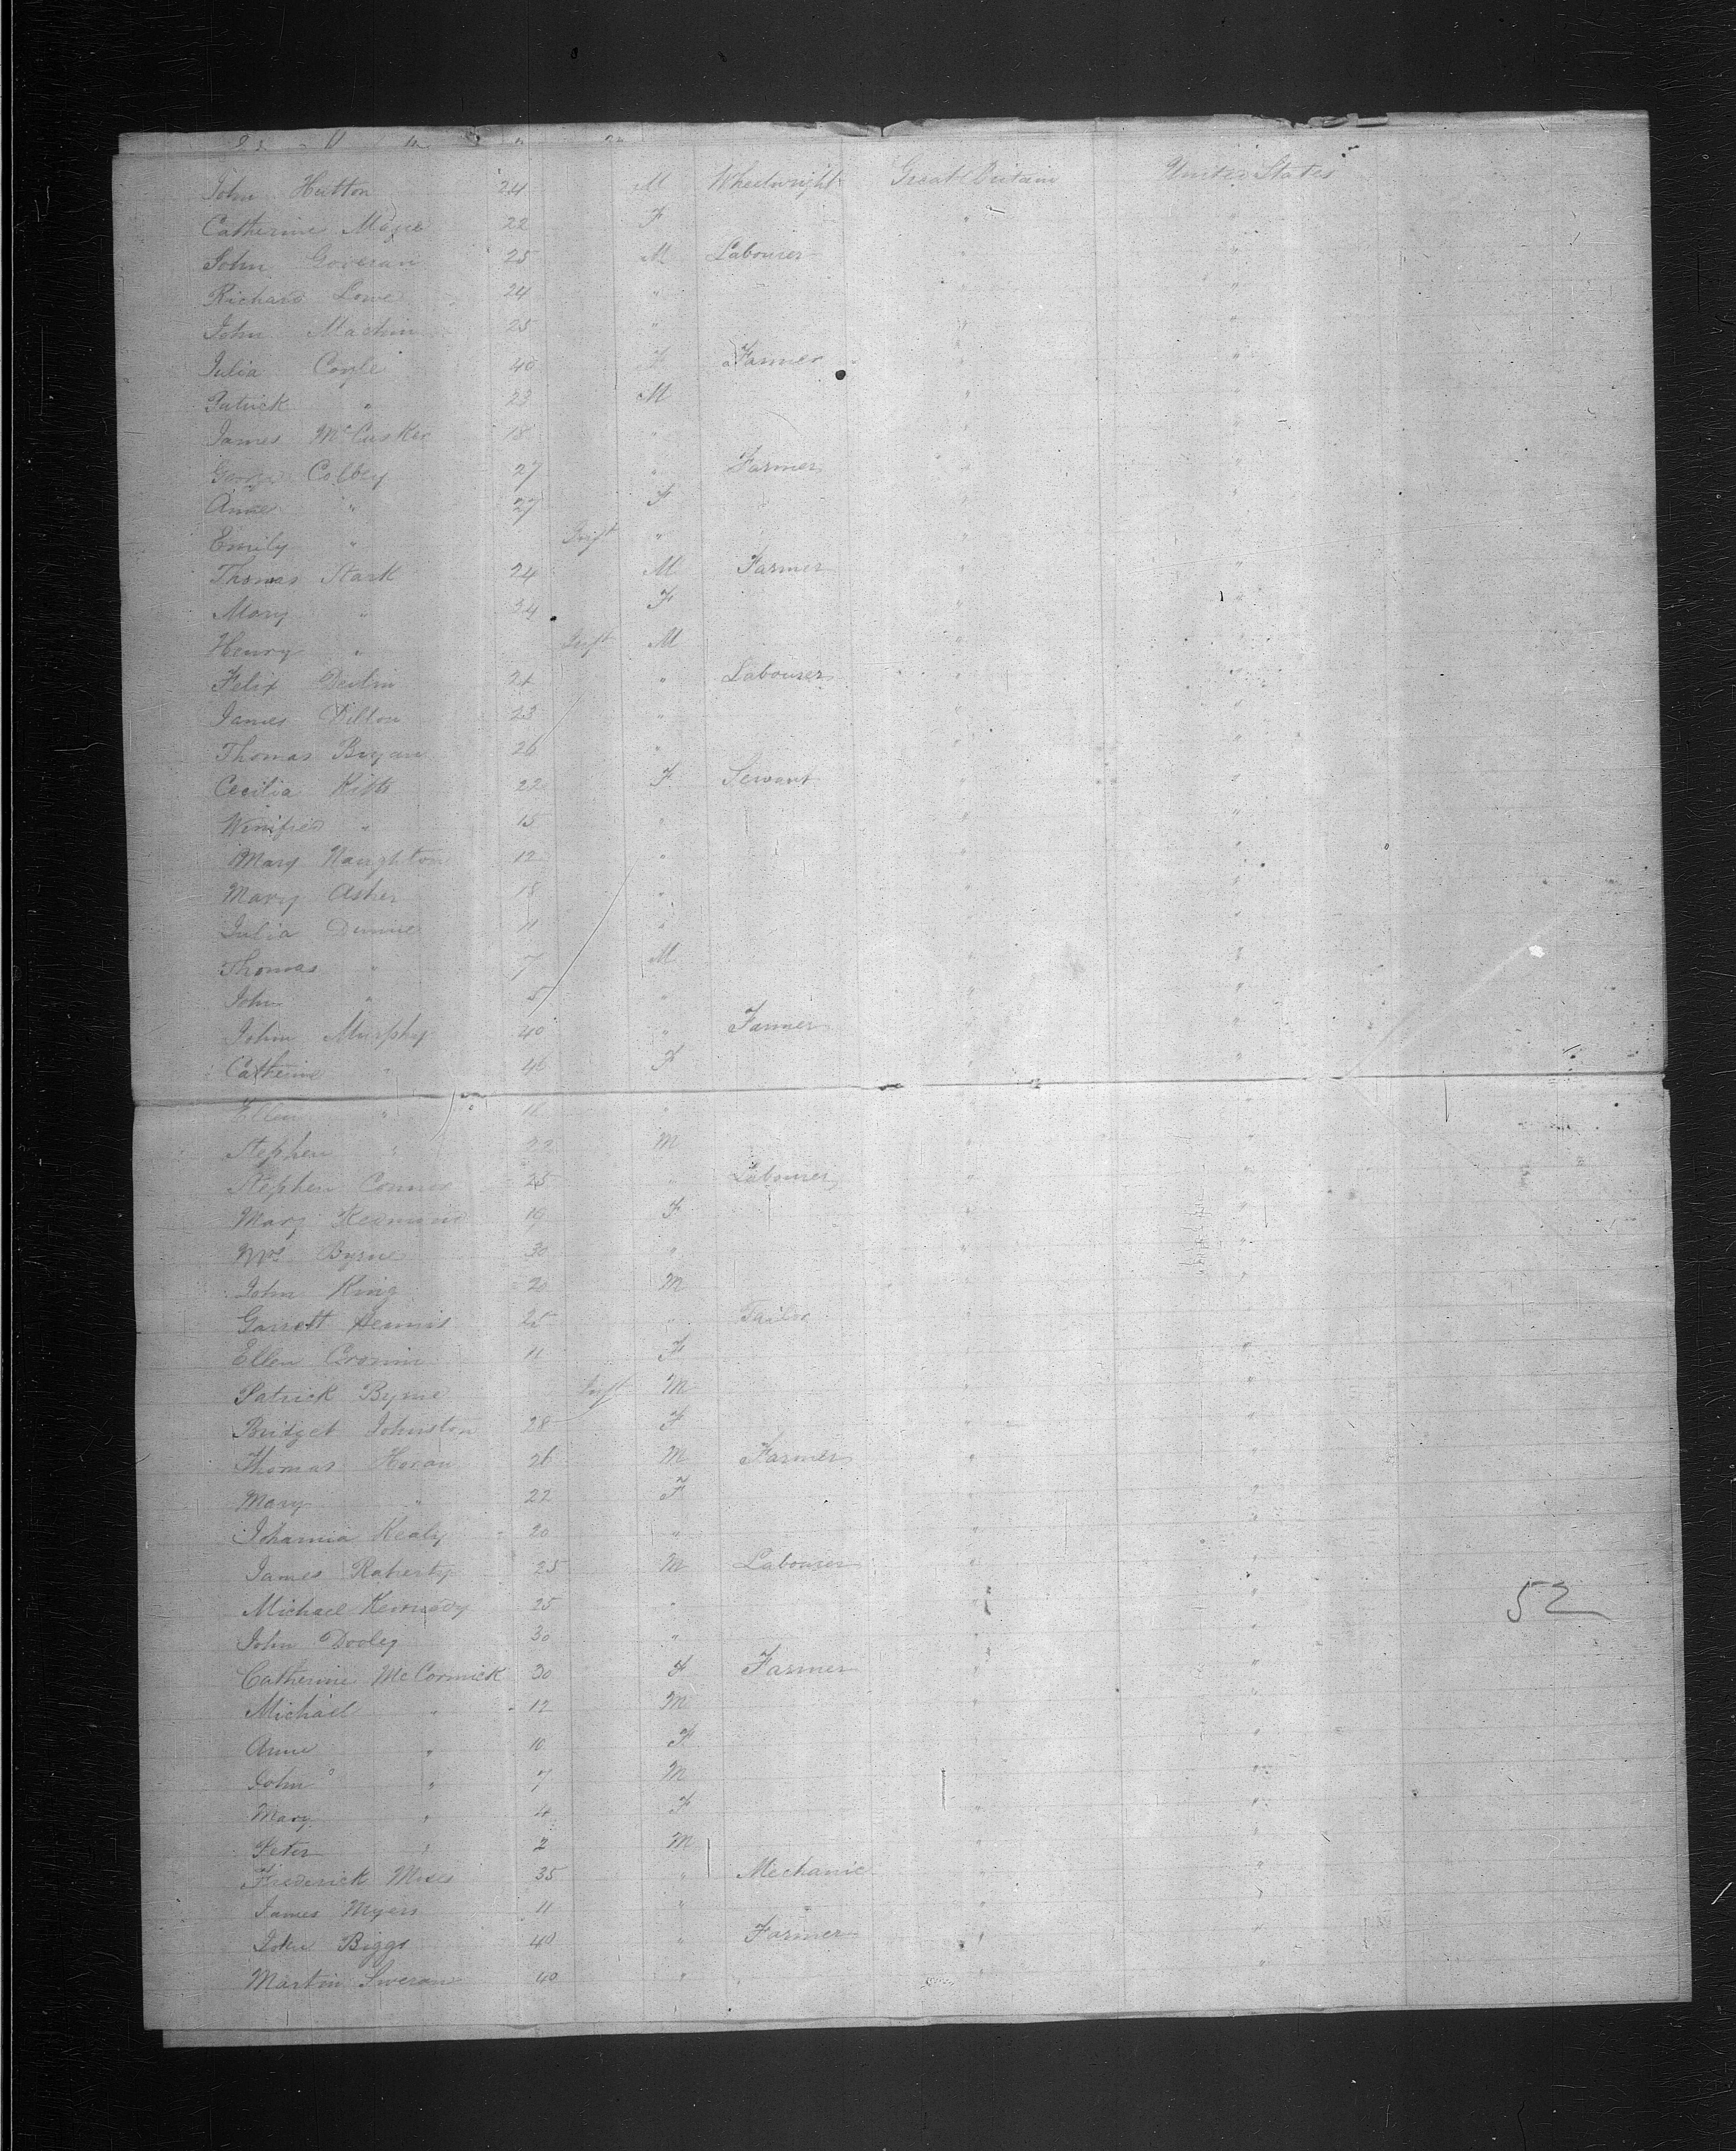 John Hutton 24 M Wheelwright Great Britain United States
Catherine Magee 22 F " "
John Goveran 25 M Labourer " "
Richard Lowe 24 " " "
John Machin 25 " " "
Julia Coyle 40 F Farmer " "
Patrick " 23 M " "
James McCusker 18 " " "
George Colbey 27 " Farmer " "
Anne " 27 F " "
Emily " Inft " " "
Thomas Stark 24 M Farmer " "
Mary " 34 F " "
Henry " Inft M " "
Felix Devlin 24 " Labourer " "
James Dillon 23 " " "
Thomas Bryan 26 " " "
Cecilia Kitts 22 F Servant " "
Winifred " 15 " " "
Mary Naughton 12 " " "
Mary Asher 18 " " "
Julia Dunne 11 " " "
Thomas " 7 M " "
John " 5 " " "
John Murphy 40 " Farmer " "
Catherine " 46 F " "
Ellen " " " "
Stephen " 22 M " "
Stephen Connor 25 " Labourer " "
Mary Redmond 19 F " "
Mrs Byrne 30 " " "
John King 20 M " "
Garrett Dennis 25 " Tailor " "
Ellen Cronin 11 F " "
Patrick Byrne Inft M " "
Bridget Johnston 28 F " "
Thomas Horan 26 M Farmer " "
Mary " 22 F " "
Johanna Kealy 20 " " "
James Raherty 25 M Labourer " "
Michael Kennedy 25 " " "
52
John Dooley 30 " " "
Catherine McCormick 30 F Farmer " "
Michael " 12 M " "
Anne " 10 F " "
John " 7 M " "
Mary " 4 F " "
Peter " 2 M " "
Frederick Moses 35 " Mechanic " "
James Myers 11 " " "
John Biggs 40 " Farmer " "
Martin 40 " " " "